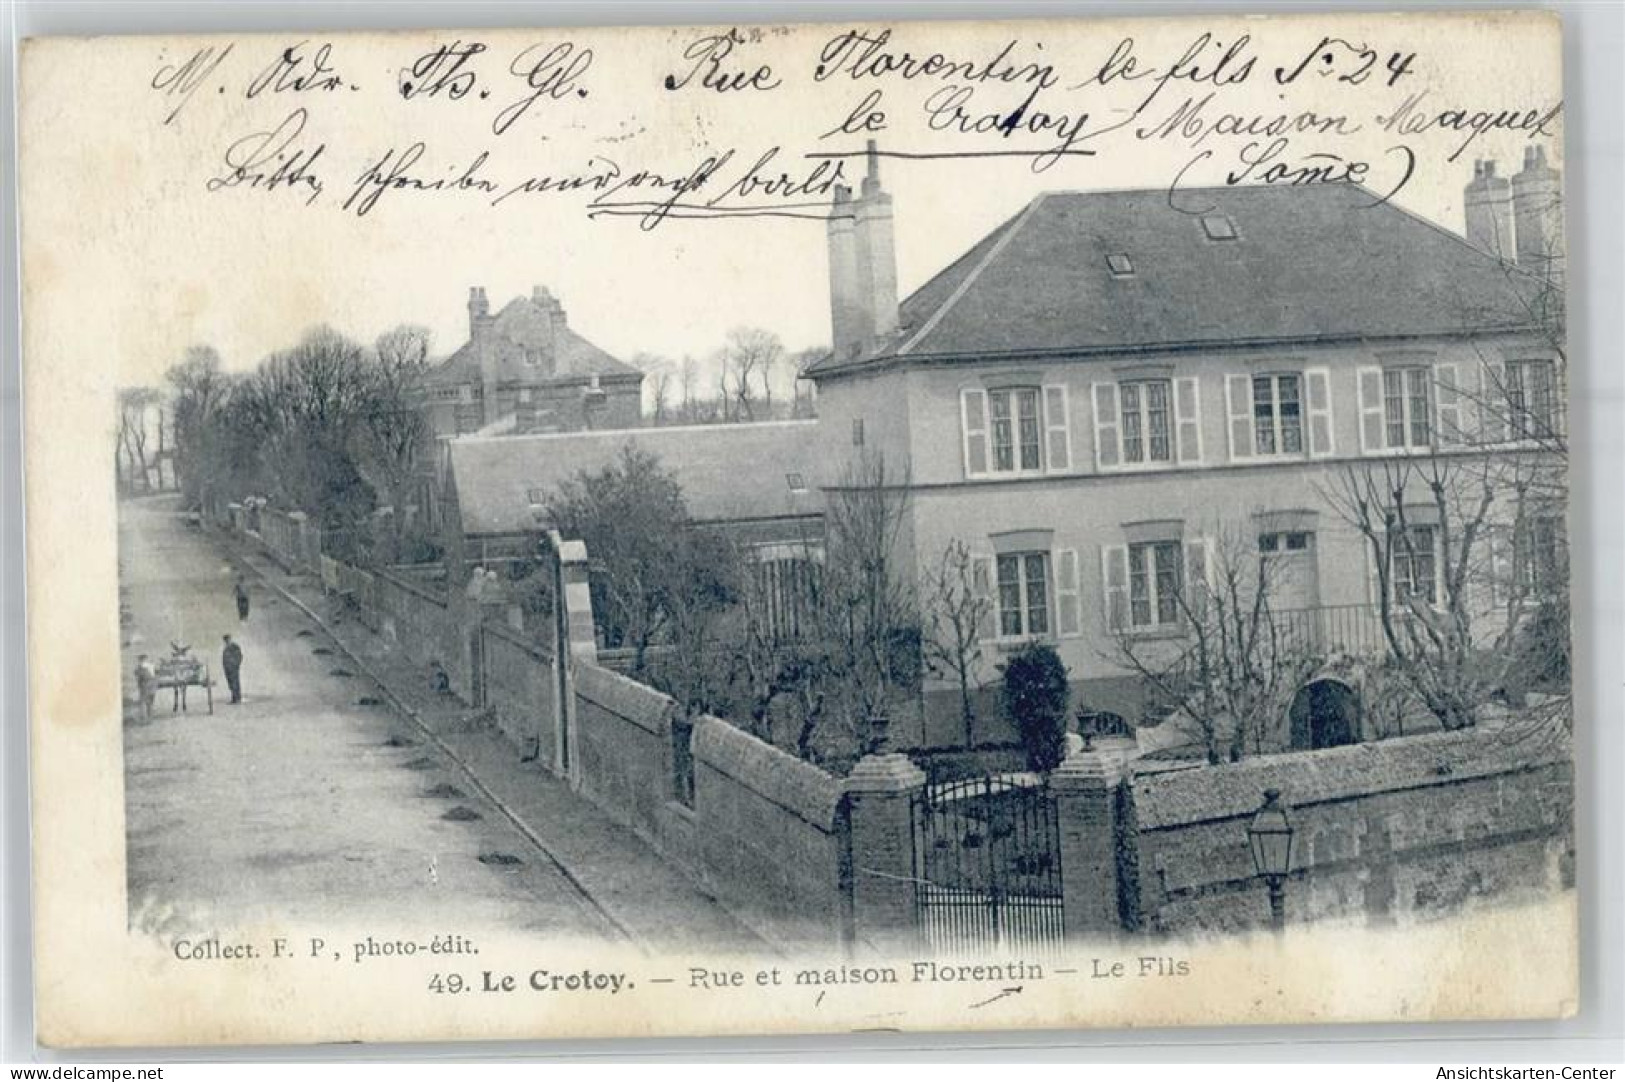 M. Adr. Th. Gl. Rue Florentin le fils Nr 24
le Crotoy Maison Maquet
Bitte, schreibe mir recht bald
(Somme)
Collect. F. P, photo-édit.
49. Le Crotoy. — Rue et maison Florentin — Le Fils
Ansichtskarten-Center